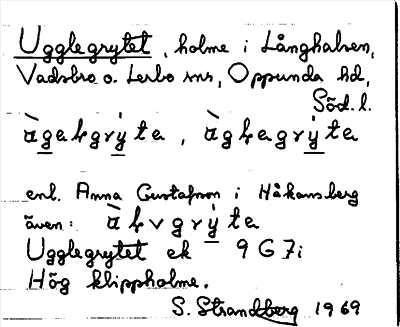 Ugglegrytet, holme i Långhalsen,
Vadsbro o. Lerbo snr, Oppunda hd,
Söd. l.
àgalgrÿta, àglagrÿta
enl. Anna Gustafson i Håkansberg
även: àlvgrÿta
Ugglegrytet ek 9G7i
Hög klippholme.
S. Strandberg 1969